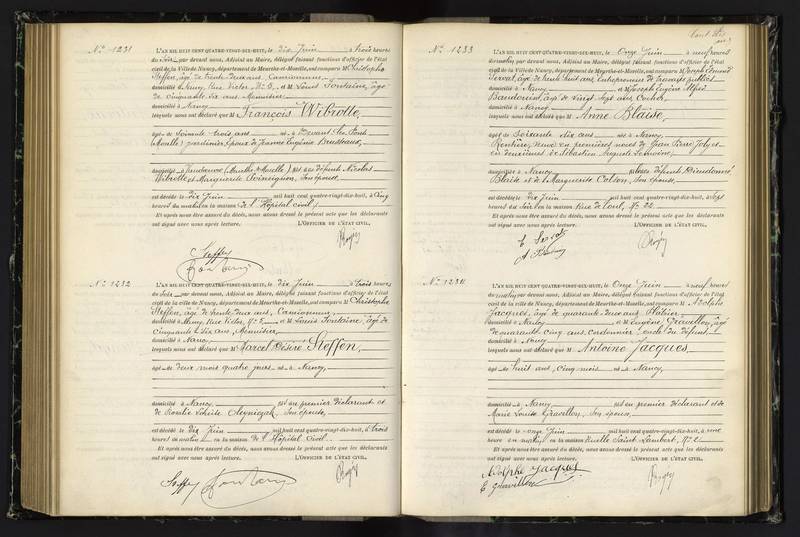 N° 1231
L'AN MIL HUIT CENT QUATRE-VINGT-DIX-HUIT, le dix Juin à trois heures
du Soir, par devant nous, Adjoint au Maire, délégué faisant fonctions d'officier de l'état
civil de la Ville de Nancy, département de Meurthe-et-Moselle, ont comparu M Christophe
Steffen, âgé de trente deux ans, Camionneur,
domicilié à Nancy, Rue et M Louis Fontaine, âgé
de cinquante dix ans, Menuisier
domicilié à Nancy
lesquels nous ont déclaré que M François Wibrotte,
âgé de Soixante trois ans né à
jardinier, Epoux de Jeanne Eugénie
domicilié à Vandoeuvre (Meurthe & Moselle) fils des défunts Nicolas
Wibrotte et Marguerite Son épouse,
est décédé le dix Juin mil huit cent quatre-vingt-dix-huit, à Cinq
heures du matin en la maison de l'Hôpital civil;
Et après nous être assuré du décès, nous avons dressé le présent acte que les déclarants
ont signé avec nous après lecture. L'OFFICIER DE L'ÉTAT CIVIL,
C Steffen
Fontaine
N° 1232
L'AN MIL HUIT CENT QUATRE-VINGT-DIX-HUIT, le dix Juin à trois heures
du Soir par devant nous, Adjoint au Maire, délégué faisant fonctions d'officier de l'état
civil de la Ville de Nancy, département de Meurthe-et-Moselle, ont comparu M Christophe
Steffen, âgé de trente deux ans, Camionneur,
domicilié à Nancy, Rue et M Louis Fontaine, âgé de
Cinquante dix ans, Menuisier
domicilié à Nancy
lesquels nous ont déclaré que M Marcel Désiré Steffen,
âgé de deux mois quatre jours né à Nancy,
domicilié à Nancy, fils du premier déclarant et
de Rosalie Son épouse,
est décédé le dix Juin mil huit cent quatre-vingt-dix-huit, à trois
heures du matin en la maison de l'Hôpital Civil.
Et après nous être assuré du décès, nous avons dressé le présent acte que les déclarants
ont signé avec nous après lecture. L'OFFICIER DE L'ÉTAT CIVIL,
Steffen Fontaine
N° 1233
L'AN MIL HUIT CENT QUATRE-VINGT-DIX-HUIT, le Onze Juin à neuf heures
du matin, par devant nous, Adjoint au Maire, délégué faisant fonctions d'officier de l'état
civil de la Ville de Nancy, département de Meurthe-et-Moselle, ont comparu M Joseph Edmond
âgé de trente huit ans, Entrepreneur de travaux publics
domicilié à Nancy et M Joseph Eugène Alfred
Baudouin, âgé de vingt sept ans, Cocher,
domicilié à Nancy
lesquels nous ont déclaré que M Anne Blaise,
âgée de Soixante dix ans née à Nancy,
Rentière, veuve en premières noces de Jean Pierre Joly et
en deuxièmes de Sébastien Auguste Lemoine,
domiciliée à Nancy fille des défunts Dieudonné
Blaise et de Marguerite Colson, Son épouse,
est décédée le dix Juin mil huit cent quatre-vingt-dix-huit, à sept
heures du soir en la maison Rue de Toul, N° 22.
Et après nous être assuré du décès, nous avons dressé le présent acte que les déclarants
ont signé avec nous après lecture. L'OFFICIER DE L'ÉTAT CIVIL,
N° 1234
L'AN MIL HUIT CENT QUATRE-VINGT-DIX-HUIT, le Onze Juin à neuf heures
du matin par devant nous, Adjoint au Maire, délégué faisant fonctions d'officier de l'état
civil de la Ville de Nancy, département de Meurthe-et-Moselle, ont comparu M Adolphe
Jacques, âgé de quarante deux ans,
domicilié à Nancy et M Eugène Gravillon, âgé
de quarante cinq ans, cordonnier, oncle du défunt,
domicilié à Nancy
lesquels nous ont déclaré que M Antoine Jacques,
âgé de huit ans, cinq mois né à Nancy,
domicilié à Nancy fils du premier déclarant et de
Marie Louise Gravillon, Son épouse,
est décédé le onze Juin mil huit cent quatre-vingt-dix-huit, à une
heure du matin en la maison Ruelle Saint Lambert, N° 2.
Et après nous être assuré du décès, nous avons dressé le présent acte que les déclarants
ont signé avec nous après lecture. L'OFFICIER DE L'ÉTAT CIVIL,
Adolphe Jacques
E Gravillon